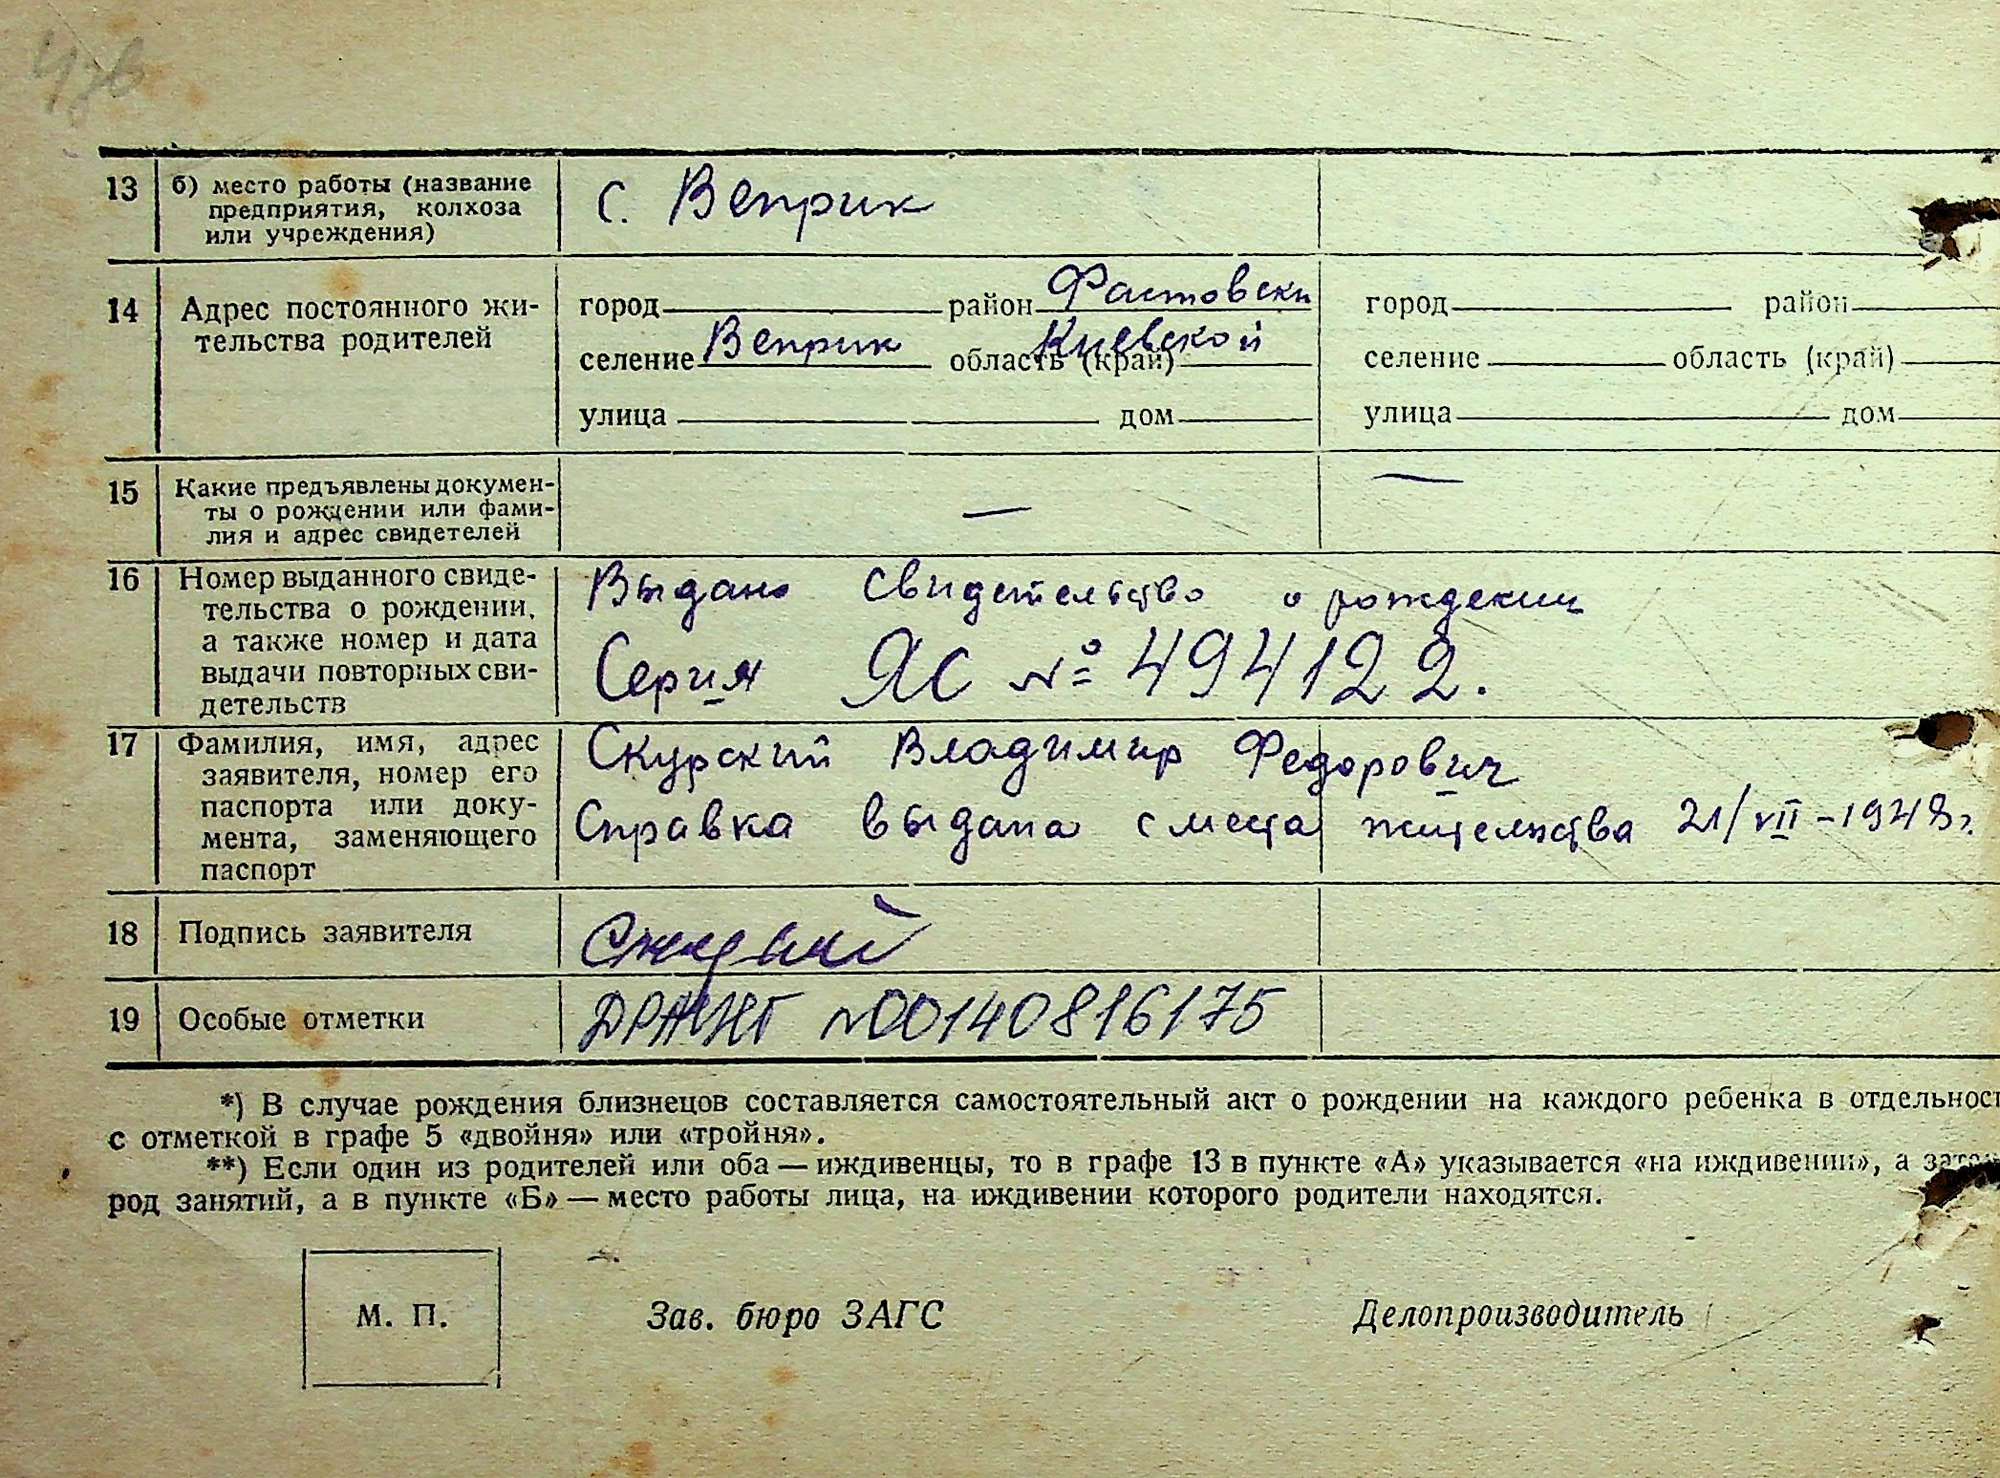 13 б) место работы (название с. Веприк
предприятия, колхоза
или учреждения)
14 Адрес постоянного жи-
тельства родителей
город район Фастовски
селение Веприк область (край) Киевской
улица дом
город район
селение область (край)
улица дом
15 Какие предъявлены докумен-
ты о рождении или фами-
лия и адрес свидетелей
— —
16 Номер выданного свиде-
тельства о рождении,
а также номер и дата
выдачи повторных сви-
детельств
Выдано свидетельство о рождении
Серия ЯС № 494122.
17 Фамилия, имя, адрес
заявителя, номер его
паспорта или доку-
мента, заменяющего
паспорт
Скурский Владимир Федорович
Справка выдана с места жительства 21/VII-1948г.
18 Подпись заявителя
19 Особые отметки
N00140816175
*) В случае рождения близнецов составляется самостоятельный акт о рождении на каждого ребенка в отдельност
с отметкой в графе 5 «двойня» или «тройня».
**) Если один из родителей или оба — иждивенцы, то в графе 13 в пункте «А» указывается «на иждивении», а зате
род занятий, а в пункте «Б» — место работы лица, на иждивении которого родители находятся.
М. П. Зав. бюро ЗАГС Делопроизводитель